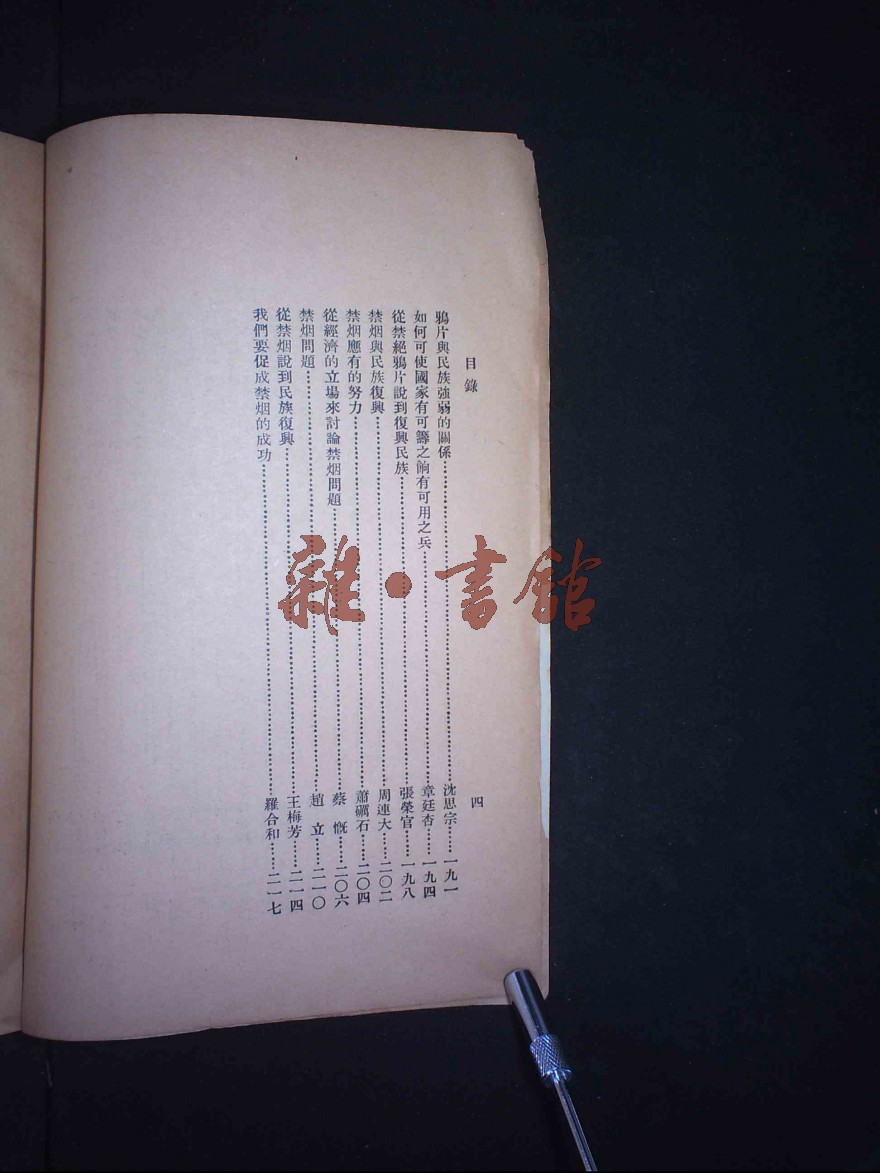 目錄
四
鴉片與民族強弱的關係……沈思宗……一九一
如何可使國家有可籌之餉有可用之兵……章廷杏……一九四
從禁絕鴉片說到復興民族……張榮官……一九八
禁烟與民族復興……周連大……二〇二
禁烟應有的努力……蕭礪石……二〇四
從經濟的立場來討論禁烟問題……蔡慨……二〇六
禁烟問題……趙立……二一〇
從禁烟說到民族復興……王梅芳……二一四
我們要促成禁烟的成功……羅合和……二一七
雜·書館